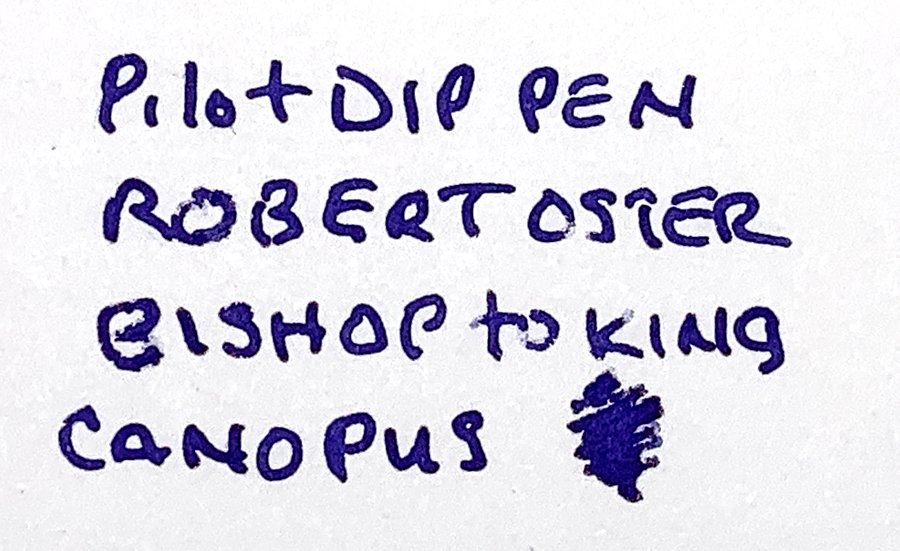 Pilot DIP PEN
ROBERT OSTER
BISHOP to KING
CANOPUS